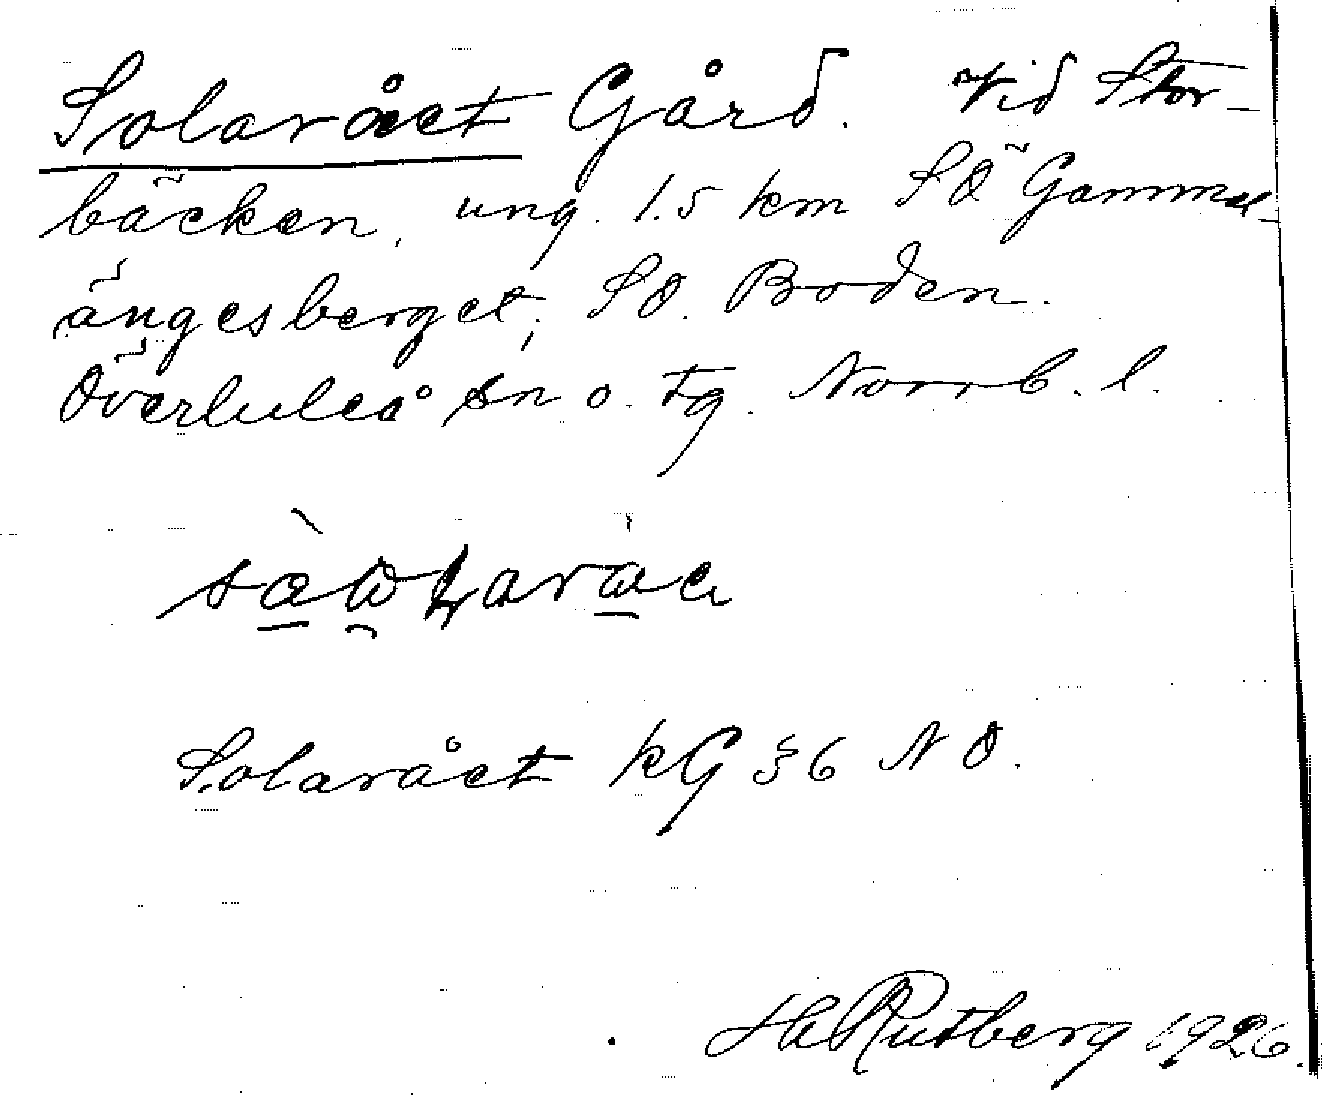 Solarået Gård. Vid Stor-
bäcken, ung. 1.5 km SÖ Gammel-
ängesberget, SO. Boden.
Överluleå sn o. tg. Norrb. l.
Solarået kG §6 NO.
H Rutberg 1926.